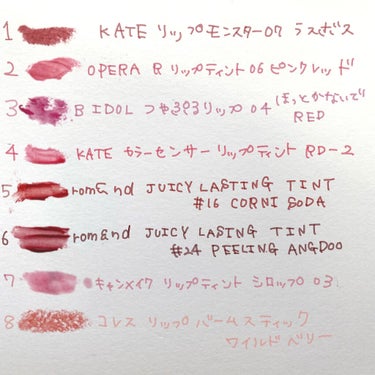 1 KATE リップモンスター07 ラスボス
2 OPERA R リップティント 06 ピンクレッド
3 B IDOL つやぷるリップ 04 ほっとかないで
RED
4 KATE カラーセンサーリップティント RD-2
5 rom&nd JUICY LASTING TINT
#16 CORNI SODA
6 rom&nd JUICY LASTING TINT
#24 PEELING ANGDOO
7 キャンメイク リップティント シロップ 03
8 コレス リップバームスティック
ワイルドベリー